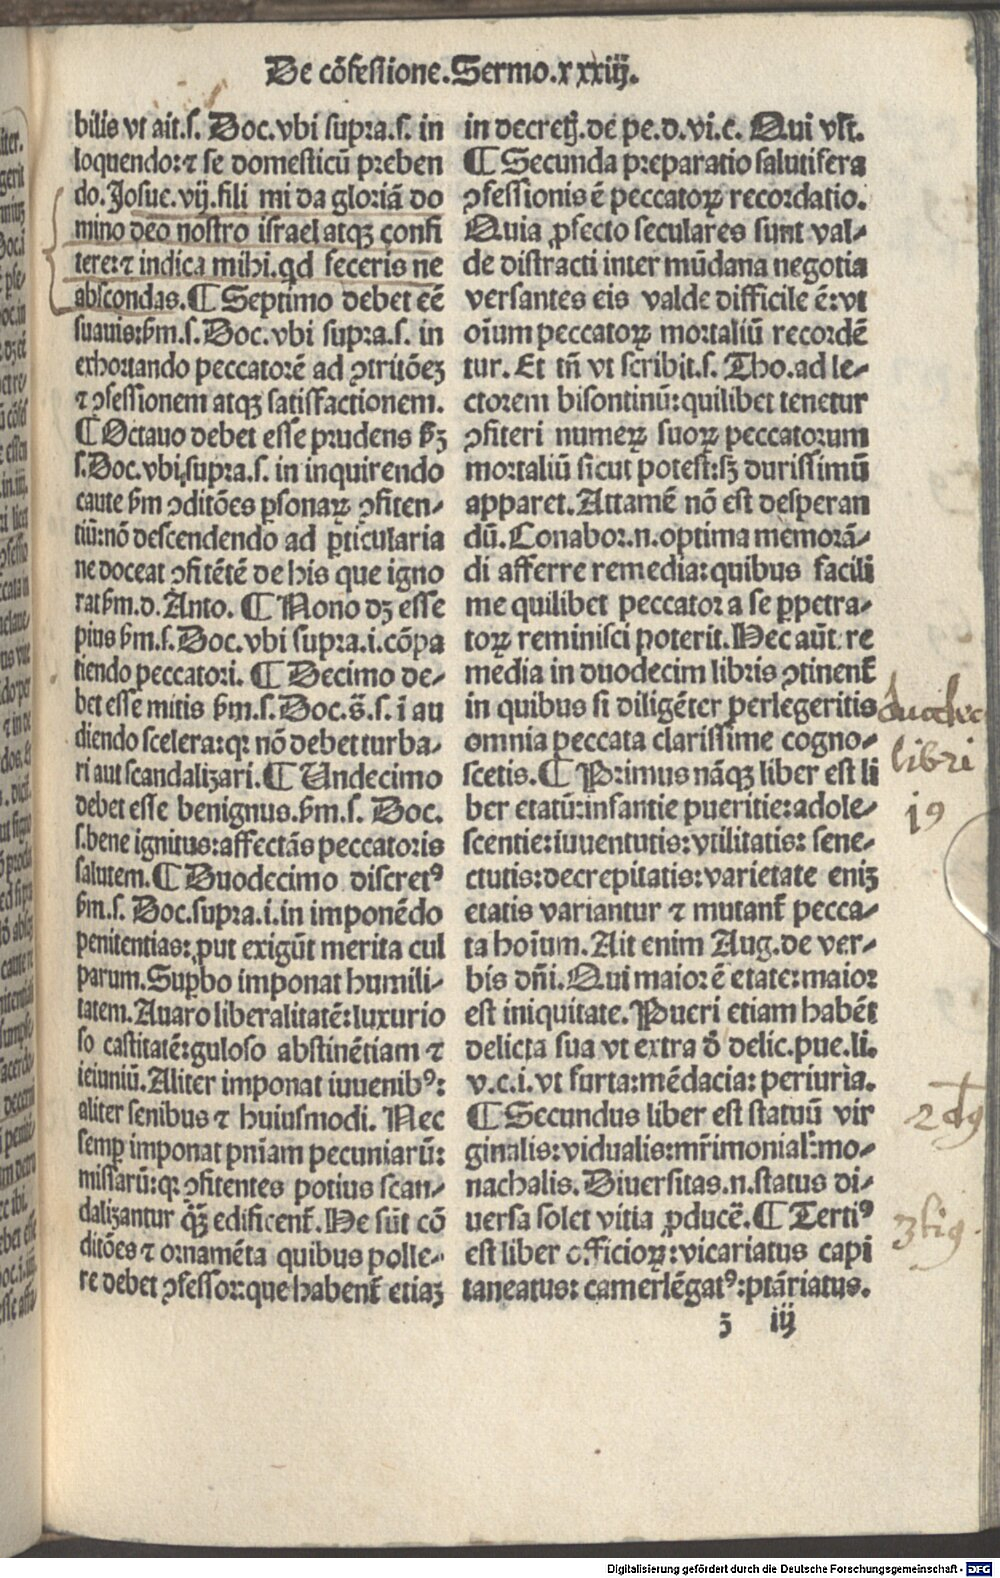 De cōfessione. Sermo. xxxiij.
bilis vt ait. s. Doc. vbi supra. s. in
loquendo: ⁊ se domesticū preben
do. Josue. vij. fili mi da gloriā do
mino deo nostro israel atqꝫ confi
tere: ⁊ indica mihi. qd feceris ne
abscondas. ¶ Septimo debet eē
suauis: ẜm. s. Doc. vbi supra. s. in
exhortando peccatorē ad ↄtritōeꝫ
⁊ ↄfessionem atqꝫ satisfactionem.
¶ Octauo debet esse prudens ẜꝫ
s. Doc. vbi supra. s. in inquirendo
caute ẜm ↄditōes ꝑsonaꝝ ↄfiten⸗
tiū: nō descendendo ad ꝑticularia
ne doceat ↄfitētē de his que igno
rat ẜm. d. Anto. ¶ Nono dꝫ esse
pius ẜm. s. Doc. vbi supra. i. cōpa
tiendo peccatori. ¶ Decimo de⸗
bet esse mitis ẜm. s. Doc. s̄. s. ī au
diendo scelera: qꝛ nō debet turba⸗
ri aut scandalizari. ¶ Undecimo
debet esse benignus. ẜm. s. Doc.
s. bene ignitus: affectās peccatoris
salutem. ¶ Duodecimo discretꝰ
ẜm. s. Doc. supra. i. in imponēdo
penitentias: ꝓut exigūt merita cul
parum. Suꝑbo imponat humili⸗
tatem. Auaro liberalitatē: luxurio
so castitatē: guloso abstinētiam ⁊
ieiuniū. Aliter imponat iuuenibꝰ:
aliter senibus ⁊ huiusmodi. Nec
semꝑ imponat pniam pecuniarū:
missarū: qꝛ ↄfitentes potius scan⸗
dalizantur q̄ꝫ edificent̄. He sūt cō
ditōes ⁊ ornamēta quibus polle⸗
re debet ↄfessor: que habent̄ etiaꝫ
in decretꝭ. de pe. d. vi. c. Qui vlt.
¶ Secunda preparatio salutifera
ↄfessionis ē peccatoꝝ recordatio.
Quia ꝓfecto seculares sunt val⸗
de distracti inter mūdana negotia
versantes eis valde difficile ē: vt
oīum peccatoꝝ mortaliū recordē
tur. Et tn̄ vt scribit. s. Tho. ad le⸗
ctorem bisontinū: quilibet tenetur
ↄfiteri numeꝝ suoꝝ peccatorum
mortaliū sicut potest: sꝫ durissimū
apparet. Attamē nō est desperan
dū. Conabor. n. optima memorā⸗
di afferre remedia: quibus facili
me quilibet peccator a se ꝑpetra⸗
toꝝ reminisci poterit. Hec aūt re
media in duodecim libris ↄtinent̄
in quibus si diligēter perlegeritis
omnia peccata clarissime cogno⸗
scetis. ¶ Primus nāqꝫ liber est li
ber etatū: infantie pueritie: adole⸗
scentie: iuuentutis: vtilitatis: sene⸗
ctutis: decrepitatis: varietate eniꝫ
etatis variantur ⁊ mutant̄ pecca⸗
ta hoīum. Ait enim Aug. de ver⸗
bis dn̄i. Qui maior ē etate: maior
est iniquitate. Pueri etiam habēt
delicta sua vt extra ꝺ̄ delic. pue. li.
v. c. i. vt furta: mēdacia: periuria.
¶ Secundus liber est statuū vir
ginalis: vidualis: mr̄imonial': mo⸗
nachalis. Diuersitas. n. status di⸗
uersa solet vitia ꝓducē. ¶ Tertiꝰ
est liber officioꝝ: vicariatus capi
taneatus: camerlēgatꝰ: ptāriatus.
ꝫ iij
duodec
libri
iꝰ
2dꝰ
3tiꝰ
Digitalisierung gefördert durch die Deutsche Forschungsgemeinschaft - DFG